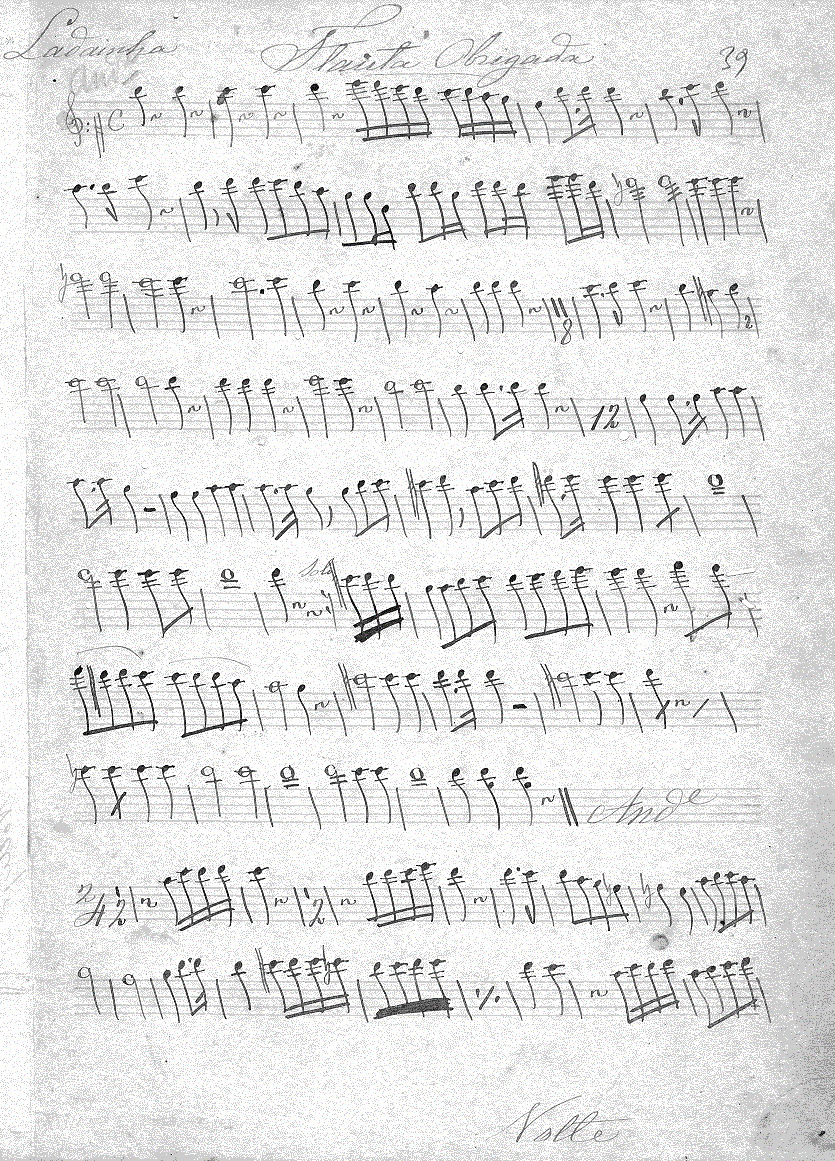 Ladainha Flauta Obrigada 39
And.e
C
8
12
Solo
And.e
2/4 2 2
Volte